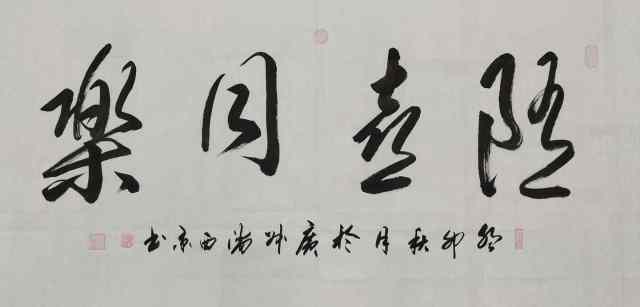 随喜同樂
癸卯秋月於廣州西京书